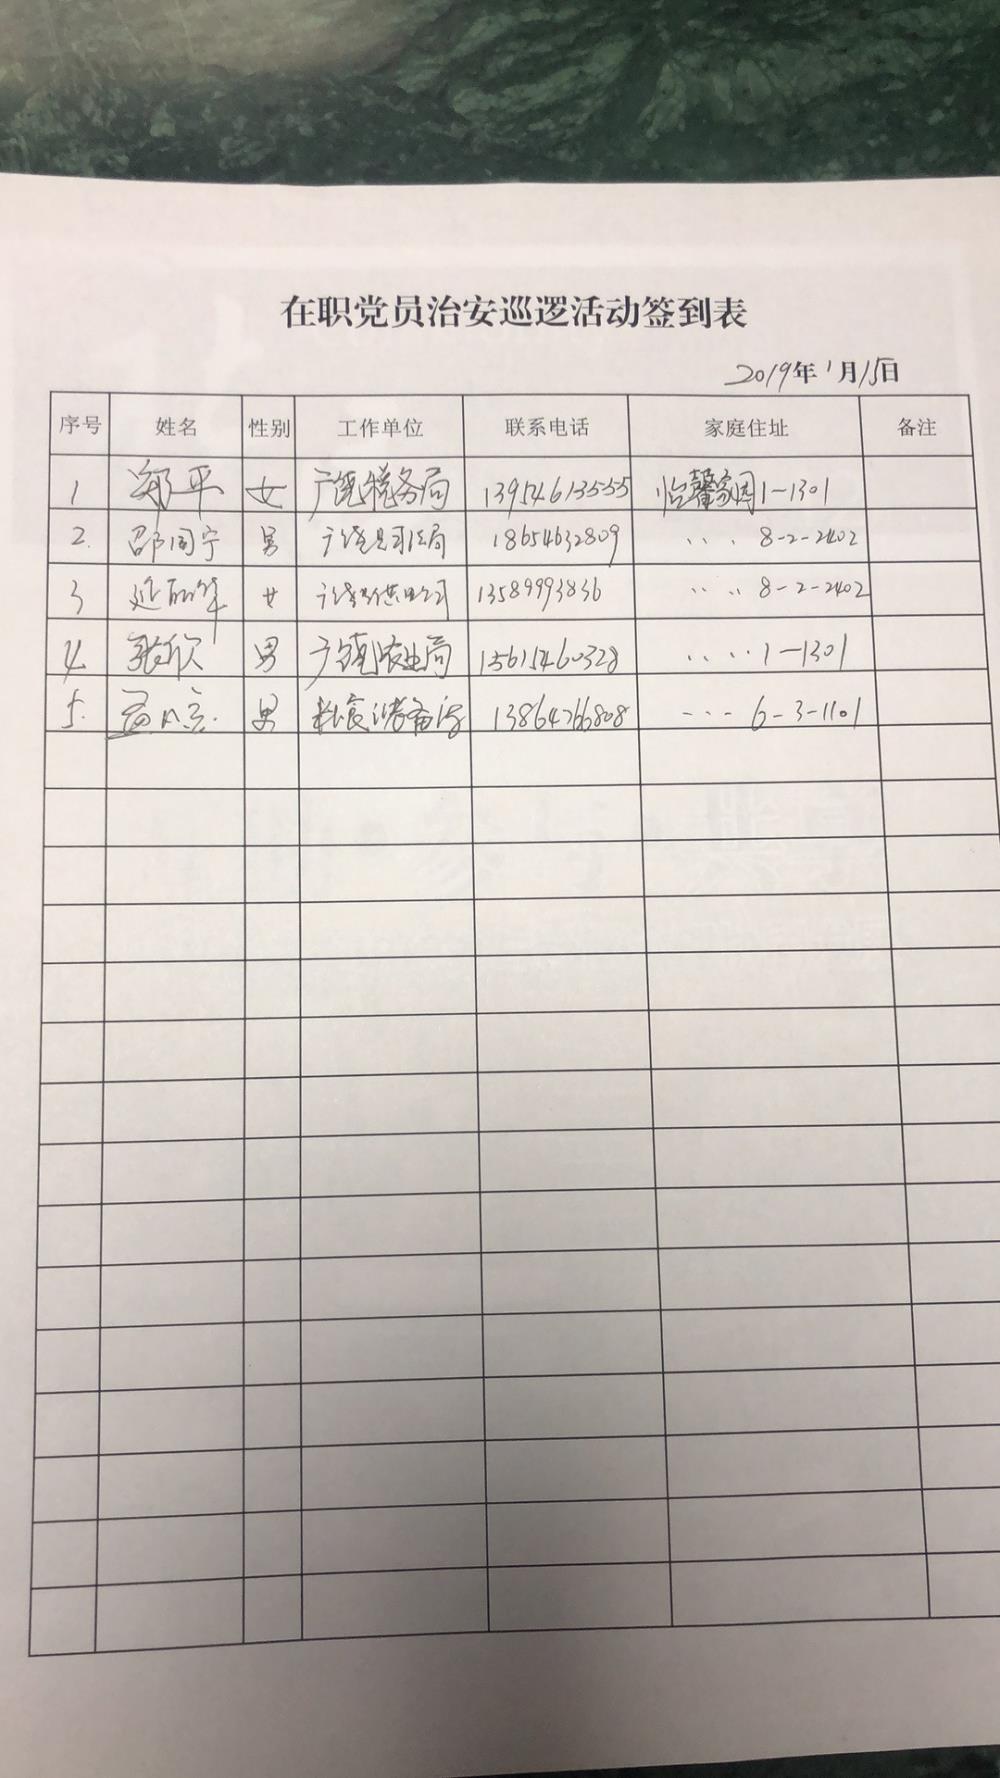 在职党员治安巡逻活动签到表
2019年1月15日
序号 姓名 性别 工作单位 联系电话 家庭住址 备注
1 郑平 女 广饶税务局 13954613555 怡馨家园1-1301
2. 邵同宁 男 广饶县司法局 18654632809 〃 〃 8-2-2402
3 延丽华 女 广饶县供电公司 13589993836 〃 〃 8-2-2402
4 张欣 男 广饶农业局 15615460328 〃 〃 1-1301
5. 男 粮食储备库 13864766808 〃 〃 6-3-1101